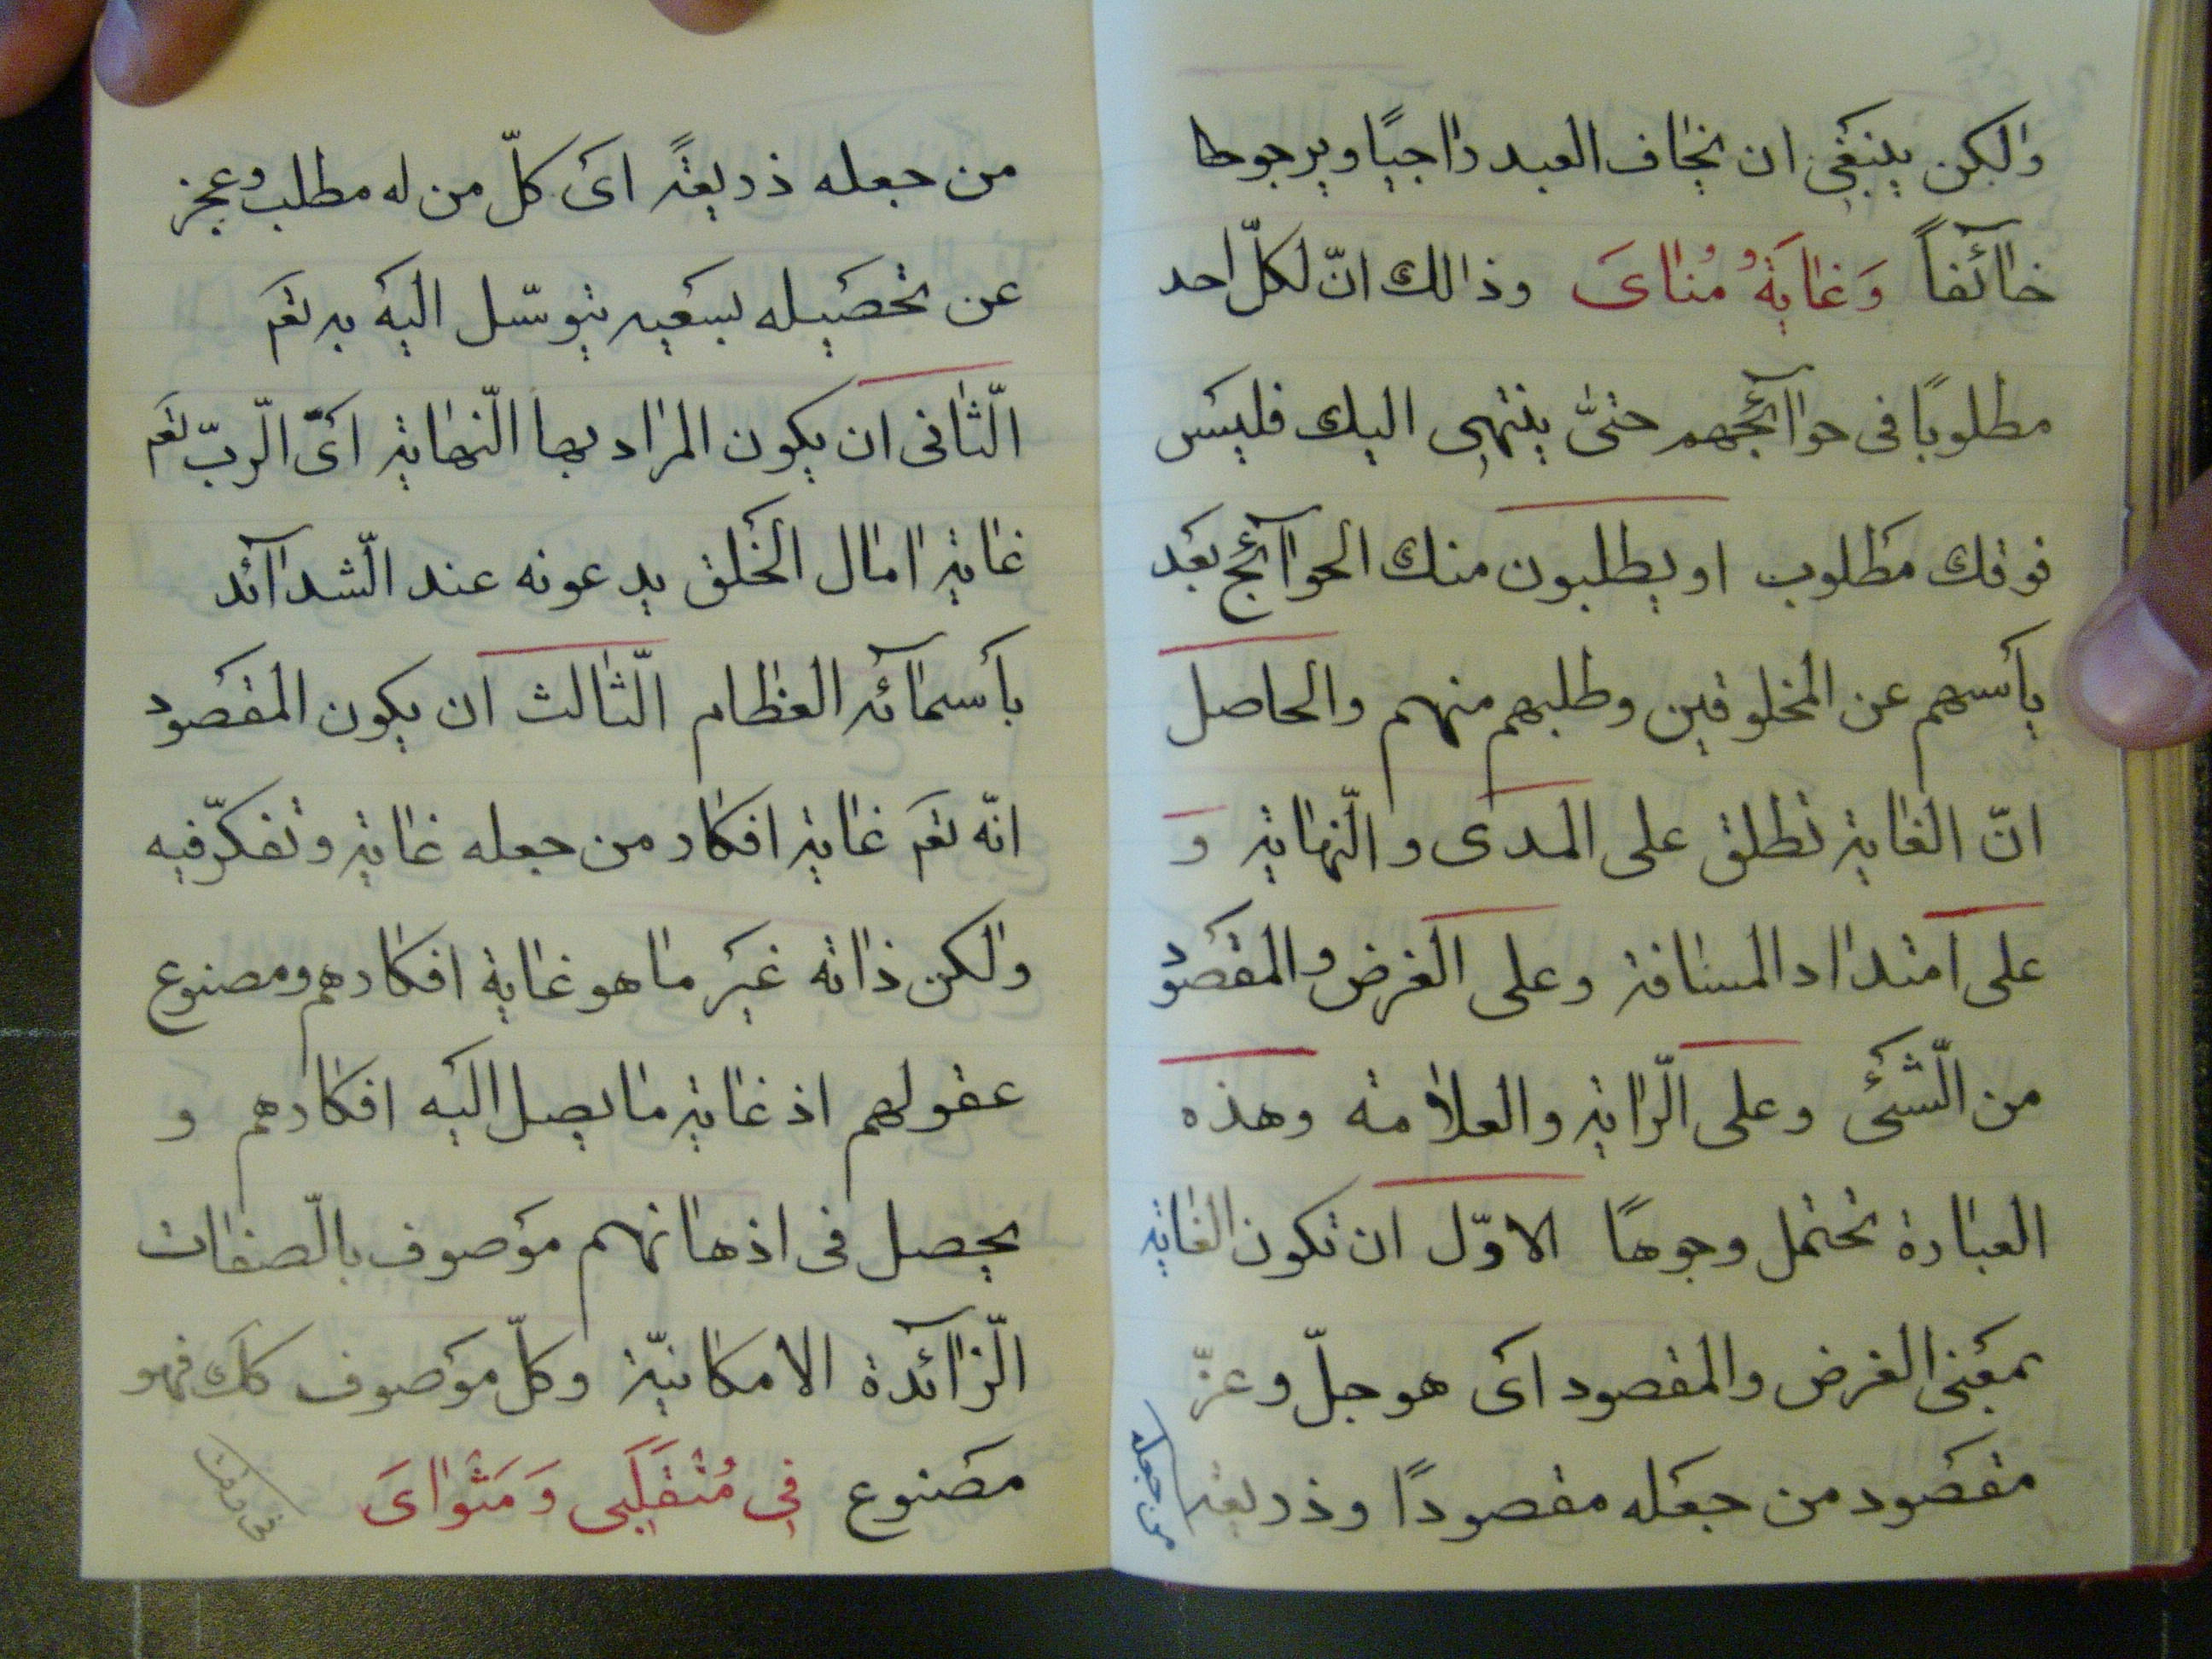 والکن ینبغی ان یخاف العبد راجیًا ویرجوها
خآئفاً وَغایَةُ مُنایَ وذالك انّ لکلّ احد
مطلوبًا فی حوآئجهم حتیّٰ ینتهی الیك فلیس
فوقك مطلوب او یطلبون منك الحوآئج بعد
یأسهم عن المخلوقین وطلبهم منهم والحاصل
انّ الغایة تطلق علی المدی و النّهایة و
علی امتداد المسافة وعلی الغرض والمقصود
من الشّئ وعلی الرّایة والعلامة وهذه
العبارة تحتمل وجوهًا الاوّل ان تکون الغایة
بمعنی الغرض والمقصود ای هو جلّ وعزّ
مقصود من جعله مقصودًا وذریعة
من جعله
من جعله ذریعةً ای کلّ من له مطلب وعجز
عن تحصیله بسعیه یتوسّل الیه به تعَم
الثّانی ان یکون المراد بها النّهایة ای الرّبّ تعَم
غایة امال الخلق یدعونه عند الشّدآئد
بأسمآئه العظام الثّالث ان یکون المقصود
انّه تعَم غایة افکار من جعله غایة وتفکّر فیه
والکن ذاته غیر ما هو غایة افکارهم ومصنوع
عقولهم اذ غایة ما یصل الیه افکارهم و
یحصل فی اذهانهم موصوف بالصّفات
الزّآئدة الامکانیّة وکلّ موصوف کلك فهو
مصنوع فِی مُنْقَلَبِی وَ مَثْوایَ